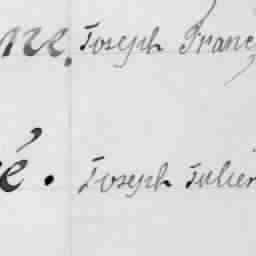 ne. Joseph Franç
é. Joseph Julien